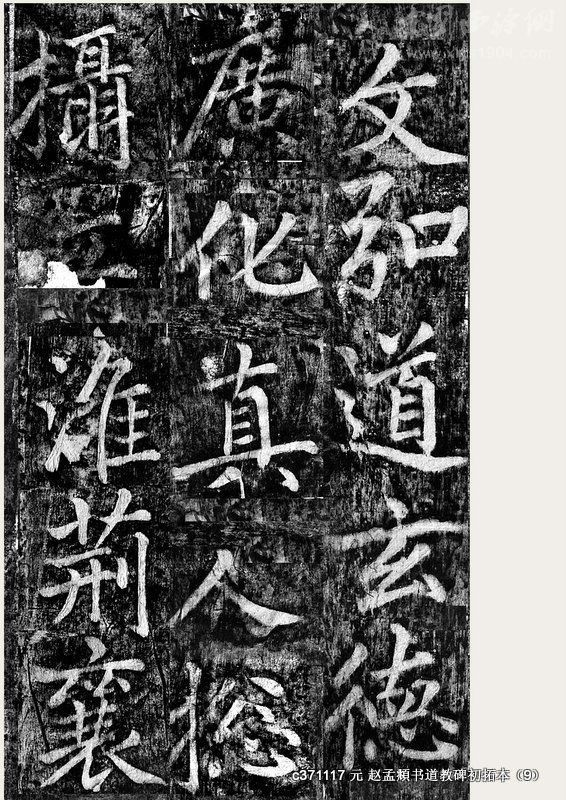 文弘道玄德
廣化真人捴
攝江淮荊襄
c371117 元 赵孟頫书道教碑初拓本（9）